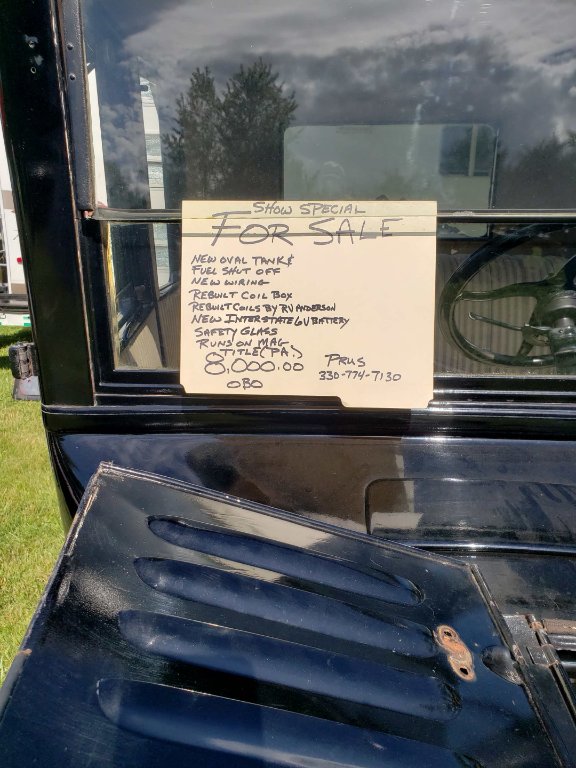 SHOW SPECIAL
FOR SALE
NEW OVAL TANK &
FUEL SHUT OFF
NEW WIRING
REBUILT COIL BOX
REBUILT COILS BY RV ANDERSON
NEW INTERSTATE 6V BATTERY
SAFETY GLASS
RUNS ON MAG
TITLE (PA.)
8,000.00
OBO
PRUS
330-774-7130